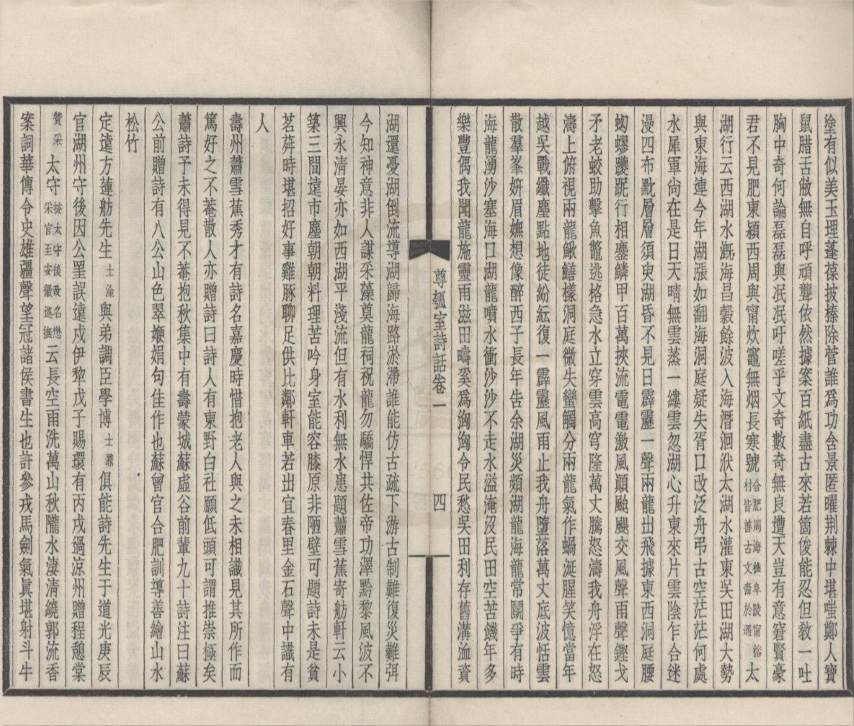 塗有似美玉理蓬葆披榛除菅誰爲功含景匿曜荆棘中堪嗤鄭人寶
鼠腊舌敝無自呼頑聾依然據案百紙盡古來若箇俊能忍但敎一吐
胸中奇何論磊磊與泯泯吁嗟乎文奇數奇無良遭天豈有意窘賢豪
君不見肥東潁西周與甯炊竈無烟長寒號太
湖行云西湖水漑海昌穀餘波入海潛洄洑太湖水灌東吳田湖大勢
與東海連今年湖漲如翻海洞庭疑失胥口改泛舟弔古空茫茫何處
水犀軍尙在是日天晴無雲蒸一縷雲忽湖心升東來片雲陰乍合迷
漫四布㪇層層須臾湖昏不見日霹靂一聲兩龍出飛據東西洞庭腰
蚴蟉蹙踞行相鏖鱗甲百萬挾流電電激風顚颭颭交風聲雨聲鏗戈
矛老蛟助擊魚鼈逃格急水立穿雲高穹隆萬丈騰怒濤我舟浮在怒
濤上俯視兩龍鰍鱔樣洞庭微失蠻觸分兩龍氣作蝸涎腥笑憶當年
越吳戰纖塵點地徒紛紜復一霹靂風雨止我舟墮落萬丈底波恬雲
散羣峯妍眉嫵想像醉西子長年吿余湖災頻湖龍海龍常鬬爭有時
海龍湧沙塞海口湖龍噴水衝沙沙不走水溢淹沒民田空苦饑年多
樂豐偶我聞龍施靈雨滋田疇奚爲洶洶令民愁吳田利存舊溝洫賚
尊瓠室詩話卷一
四
湖還憂湖倒流導湖歸海路淤滯誰能仿古疏下游古制難復災難弭
今知神意非人謀采藻奠龍祠祝龍勿驕悍共佐帝功澤黔黎風波不
興永淸晏亦如西湖平淺流但有水利無水患題蕭雪蕉寄舫軒云小
築三間遠市塵朝朝料理苦吟身室能容膝原非陋壁可題詩未是貧
茗荈時堪招好事雞豚聊足供比鄰軒車若出宜春里金石聲中識有
人
壽州蕭雪蕉秀才有詩名嘉慶時惜抱老人與之未相識見其所作而
篤好之不菴散人亦贈詩曰詩人有東野白社願低頭可謂推崇極矣
蕭詩予未得見不菴抱秋集中有壽蒙城蘇虛谷前輩九十詩注曰蘇
公前贈詩有八公山色翠㛹娟句佳作也蘇曾官合肥訓導善繪山水
松竹
定遠方蓮舫先生士淦與弟調臣學博士鼐俱能詩先生于道光庚辰
官湖州守後因公罣誤遠戍伊犂戊子賜環有丙戌過涼州贈程憩棠
贊采太守按太守後改名楙采官至安徽巡撫云長空雨洗萬山秋隴水淒淸繞郭流香
案詞華傳令史雄疆聲望冠諸侯書生也許參戎馬劍氣眞堪射斗牛